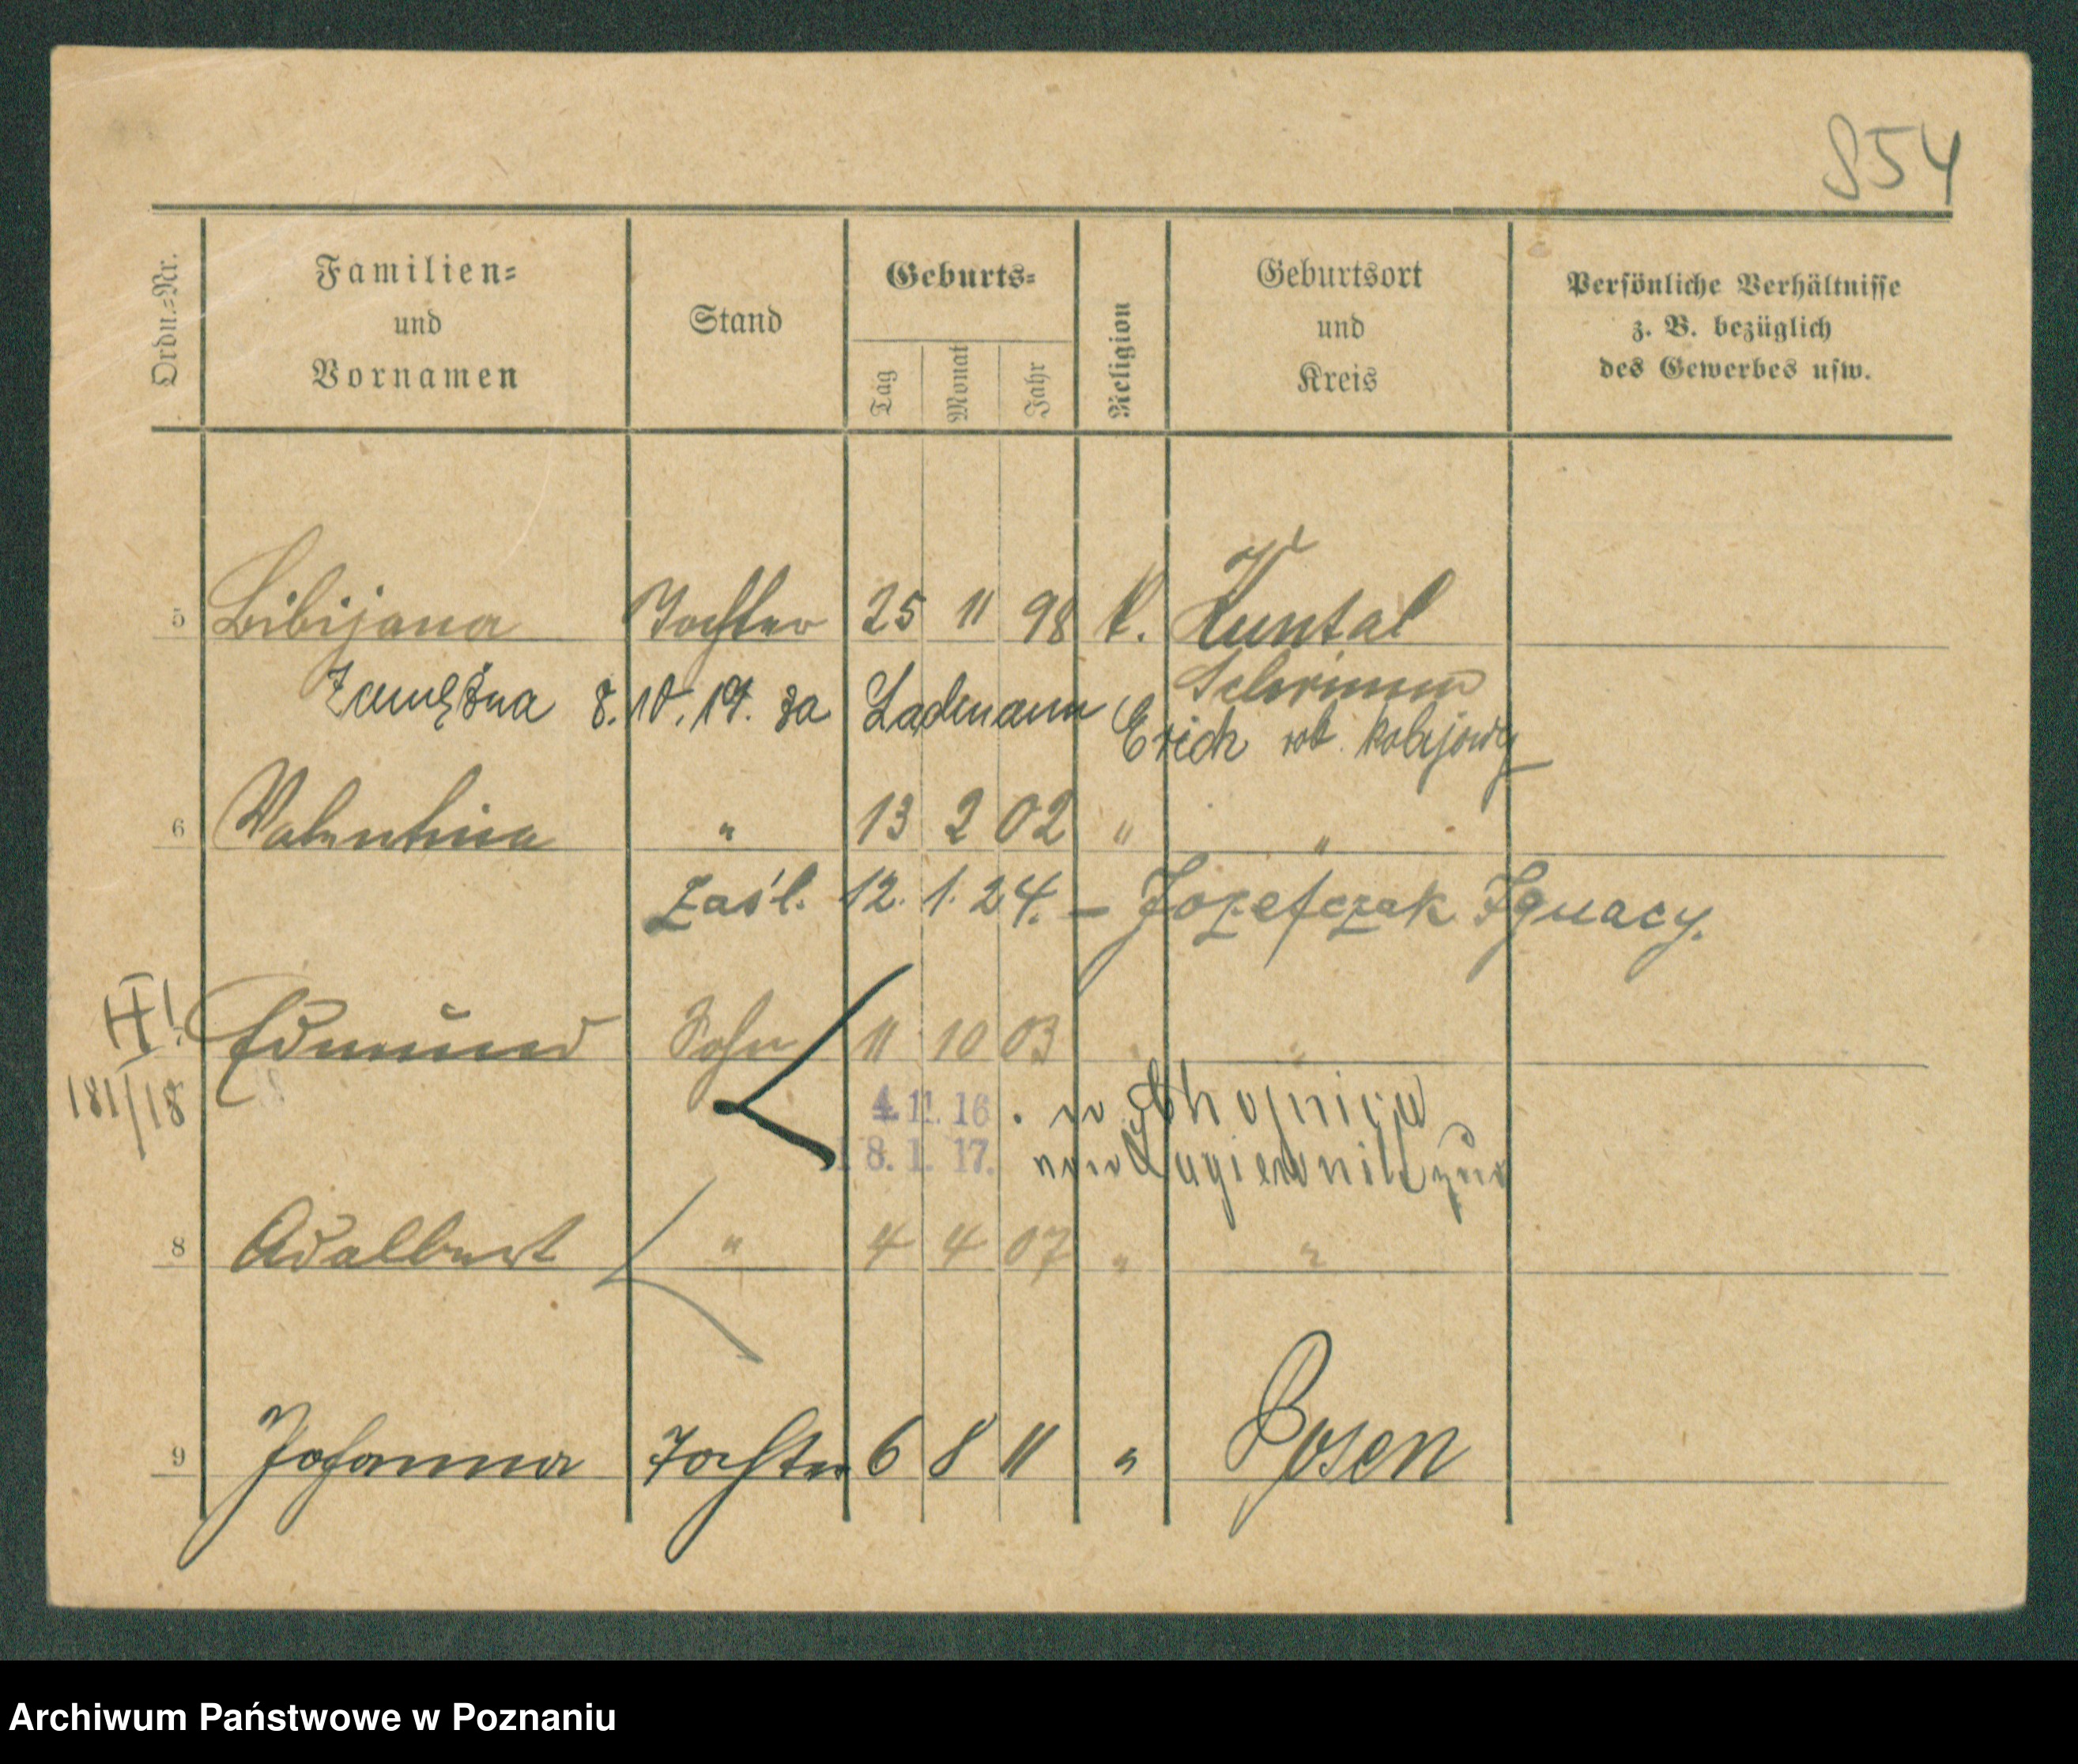 854
Ordn.=Nr.
Familien=
und
Vornamen
Stand
Geburts=
Tag
Monat
Jahr
Religion
Geburtsort
und
Kreis
Persönliche Verhältnisse
z. B. bezüglich
des Gewerbes usw.
5 Bibijana Tochter 25 11 98 k. Kuntal
Schrimm
Zamężna 8.10.19. za Ladmann Erich rob. kolejowy
6 Valentina " 13 2 02 " "
Zaśl. 12. 1. 24. – Józefczak Ignacy.
H!
Edmund Sohn 11 10 03 "
181/18
4. 11. 16. w
8. 1. 17.
8 Adalbert " 4 4 07 " "
9 Johanna Tochter 6 8 11 " Posen
Archiwum Państwowe w Poznaniu